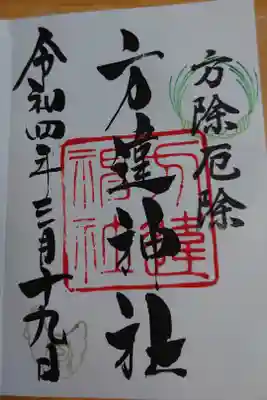 方除厄除
方違神社
方違神社
令和四年三月十九日